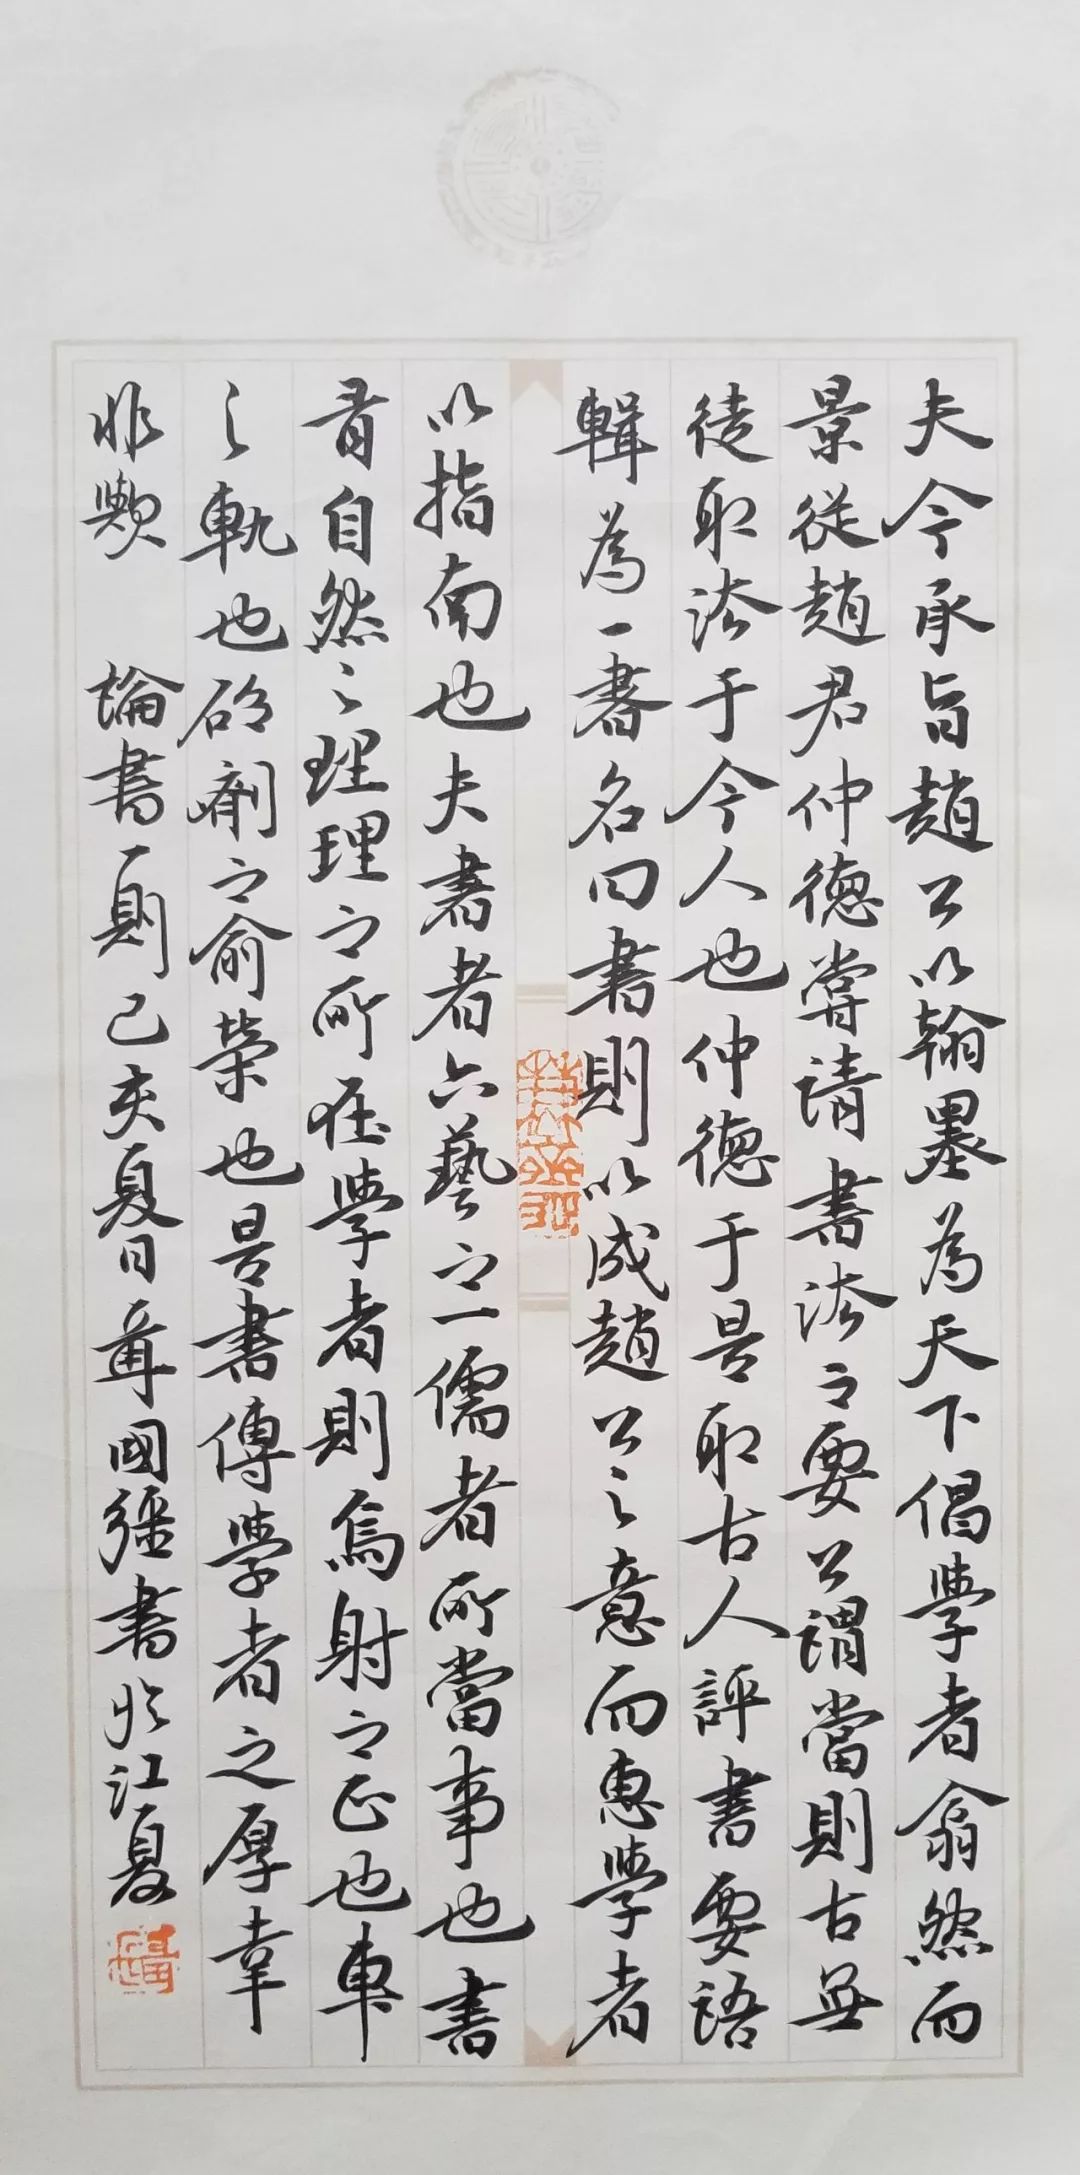 夫今承旨趙公以翰墨為天下倡學者翕然而
景從趙君仲德嘗請書法之要公謂當則古無
徒取法于今人也仲德于是取古人評書要語
輯為一書名曰書則以成趙公之意而惠學者
以指南也夫書者六藝之一儒者所當事也書
有自然之理理之所在學者則焉射之正也車
之軌也劑之俞榮也是書傳學者之厚幸
非歟 論書一則己亥夏日 國強書於江夏